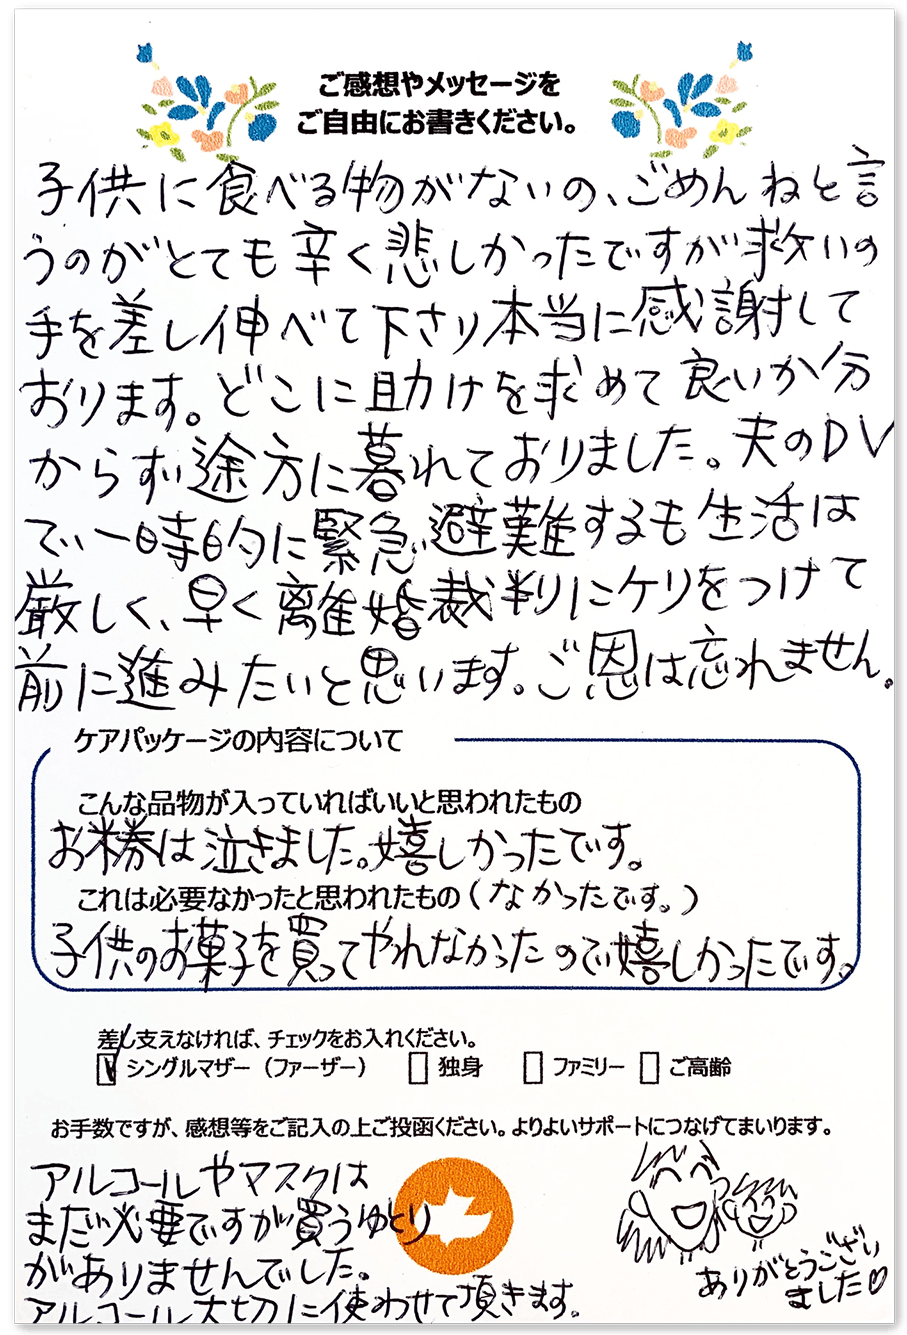 ご感想やメッセージを
ご自由にお書きください。
子供に食べる物がないの、ごめんねと言
うのがとても辛く悲しかったですが救いの
手を差し伸べて下さり本当に感謝して
おります。どこに助けを求めて良いか分
からず途方に暮れておりました。夫のDV
で、一時的に緊急避難するも生活は
厳しく、早く離婚裁判にケリをつけて
前に進みたいと思います。ご恩は忘れません。
ケアパッケージの内容について
こんな品物が入っていればいいと思われたもの
お米券は泣きました。嬉しかったです。
これは必要なかったと思われたもの(なかったです。)
子供のお菓子を買ってやれなかったので嬉しかったです。
差し支えなければ、チェックをお入れください。
シングルマザー（ファーザー） 独身 ファミリー ご高齢
お手数ですが、感想等をご記入の上ご投函ください。よりよいサポートにつなげてまいります。
アルコールやマスクは
まだ必要ですが買うゆとり
がありませんでした。
アルコール大切に使わせて頂きます。
ありがとうござい
ました♡